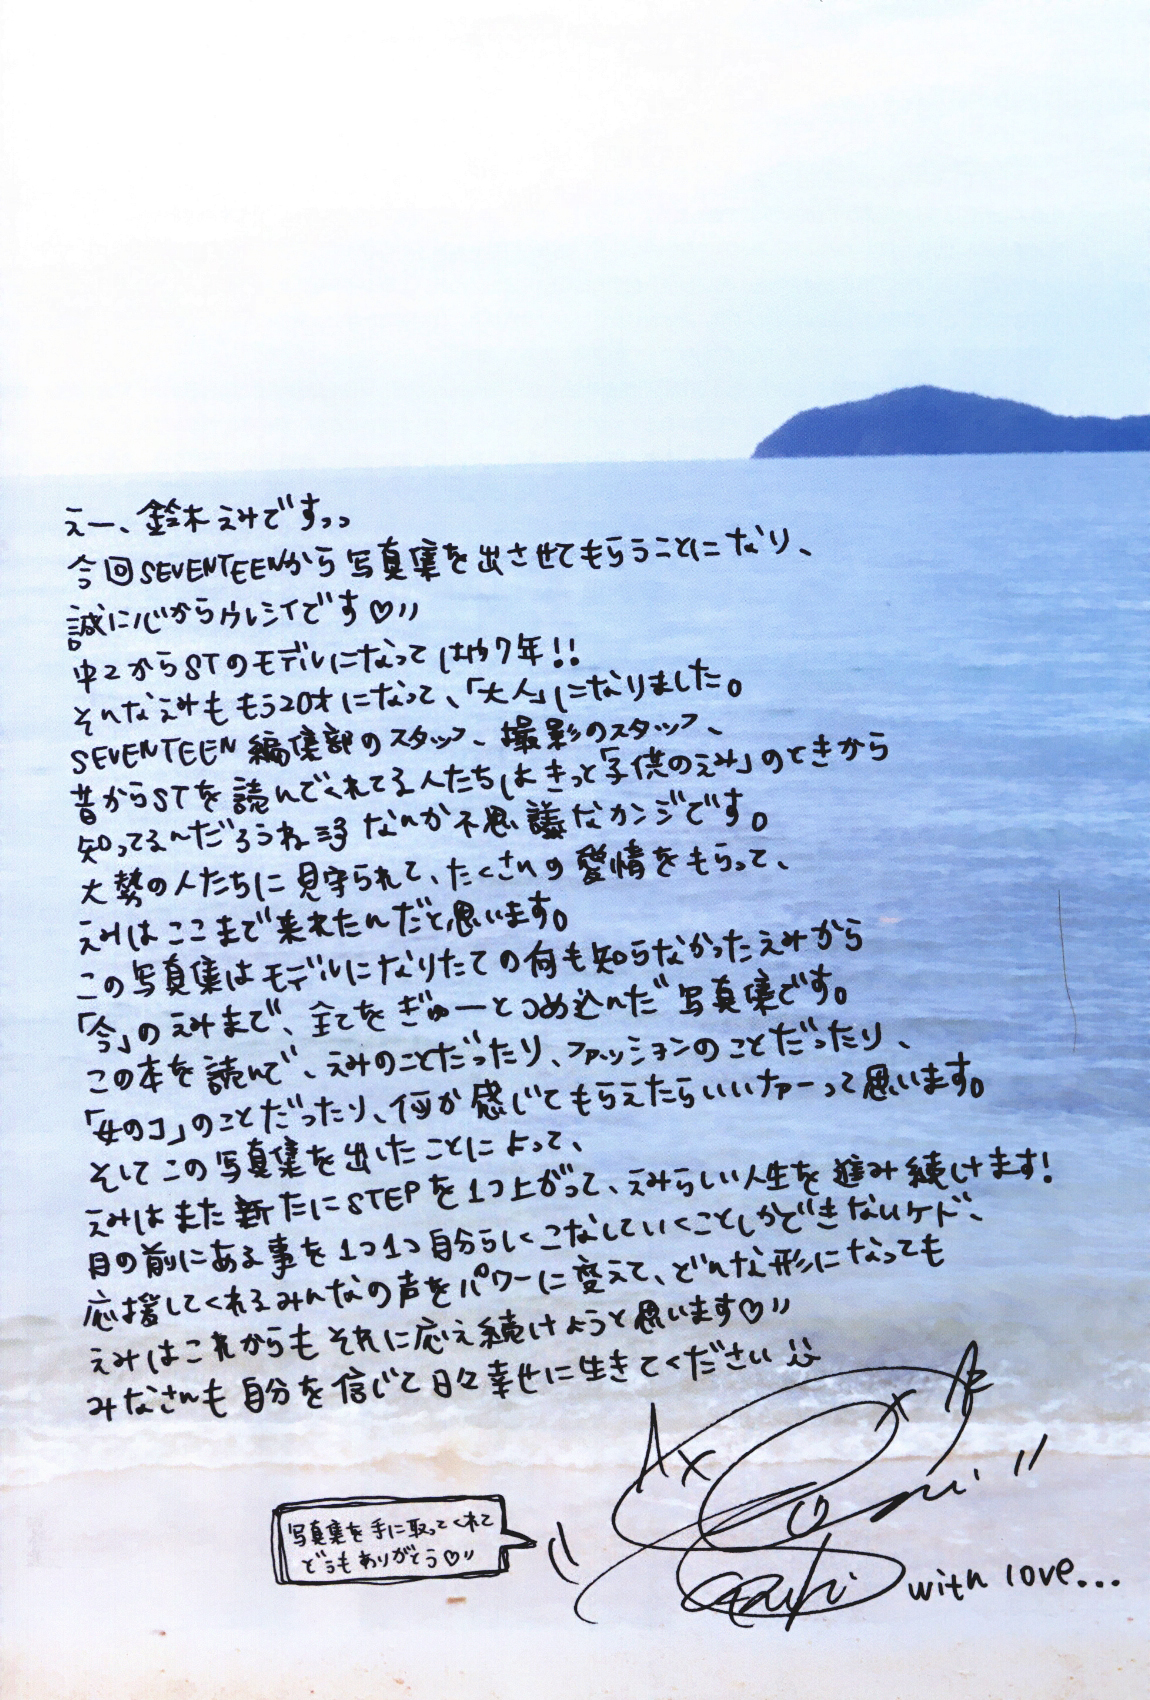 えー、鈴木えみですっっ
今回SEVENTEENから写真集を出させてもらうことになり、
誠に心からウレシイです♡〃
中2からSTのモデルになってはや7年!!
そんなえみももう20才になって、「大人」になりました。
SEVENTEEN編集部のスタッフ、撮影のスタッフ、
昔からSTを読んでくれてる人たちはきっと「子供のえみ」のときから
知ってるんだろうね なんか不思議なカンジです。
大勢の人たちに見守られて、たくさんの愛情をもらって、
えみはここまで来れたんだと思います。
この写真集はモデルになりたての何も知らなかったえみから
「今」のえみまで、全てをぎゅーとつめ込んだ写真集です。
この本を読んで、えみのことだったり、ファッションのことだったり、
「女のコ」のことだったり、何か感じてもらえたらいいなァーって思います。
そしてこの写真集を出したことによって、
えみはまた新たにSTEPを1つ上がって、えみらしい人生を進み続けます!
目の前にある事を1つ1つ自分らしくこなしていくことしかできないケド、
応援してくれるみんなの声をパワーに変えて、どんな形になっても
えみはこれからもそれに応え続けようと思います♡〃
みなさんも自分を信じて日々幸せに生きてください
写真集を手に取ってくれて
どうもありがとう♡〃
with love...